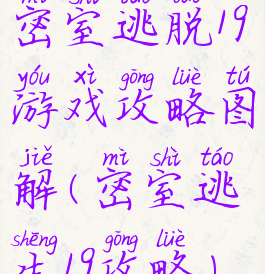 mì shì táo tuō
密室逃脱19
yóu xì gōng lüè tú
游戏攻略图
jiě mì shì táo
解(密室逃
shēng gōng lüè
生19攻略)